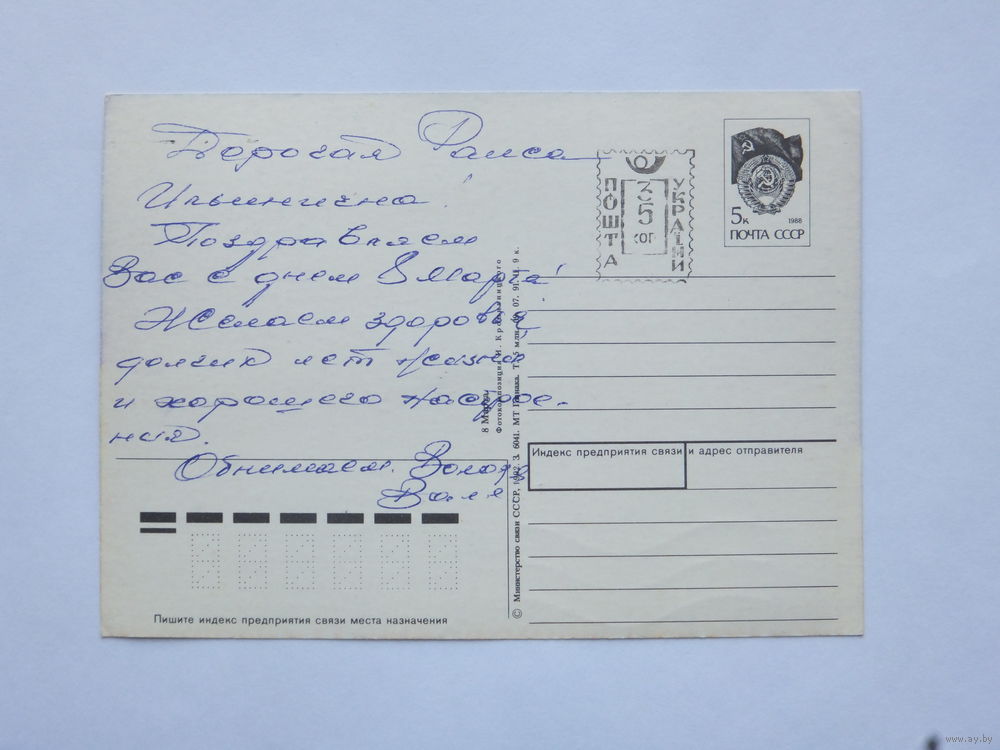 Дорогая Раиса
Ильинична!
Поздравляем
Вас с днем 8 Марта!
Желаем здоровья
долгих лет жизни
и хорошего настрое-
ния.
Обнимаем. Володя
Валя
ПОШТА
35
коп
УКРАЇНИ
5к
1988
ПОЧТА СССР
8 Марта
Фотокомпозиция И.
© Министерство связи СССР, 1992. З. 6041. МТ Гознака. 07. 91. Ц. 9 к.
Индекс предприятия связи и адрес отправителя
Пишите индекс предприятия связи места назначения
www.ay.by